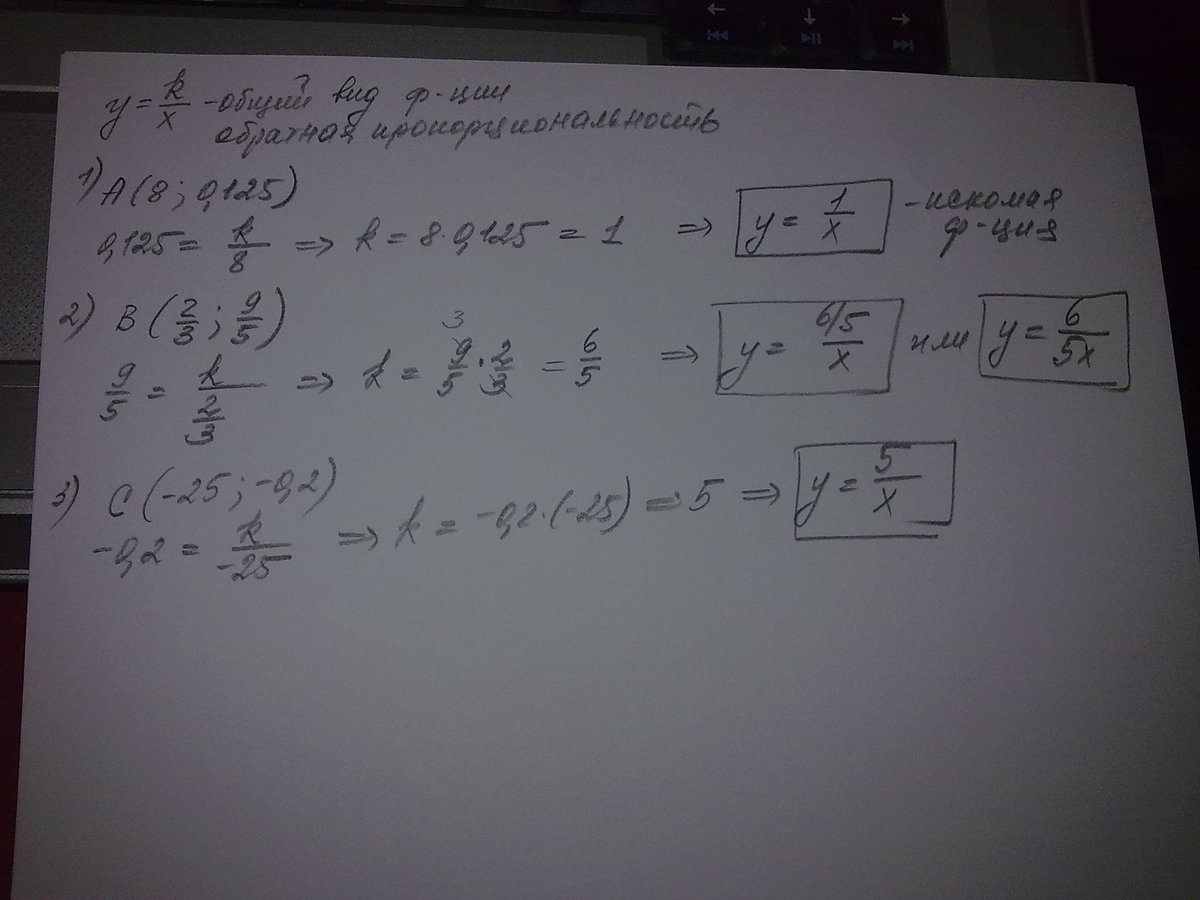 y = k/x - общий вид ф-ции
обратная пропорциональность
1) A (8 ; 0,125)
0,125 = k/8 ⇒ k = 8·0,125 = 1 ⇒ y = 1/x - искомая ф-ция
2) B (2/3 ; 9/5)
9/5 = k/(2/3) ⇒ k = 9/5 · 2/3 = 6/5 ⇒ y = (6/5)/x или y = 6/5x
3
3) C (-25 ; -0,2)
-0,2 = k/-25 ⇒ k = -0,2·(-25) = 5 ⇒ y = 5/x